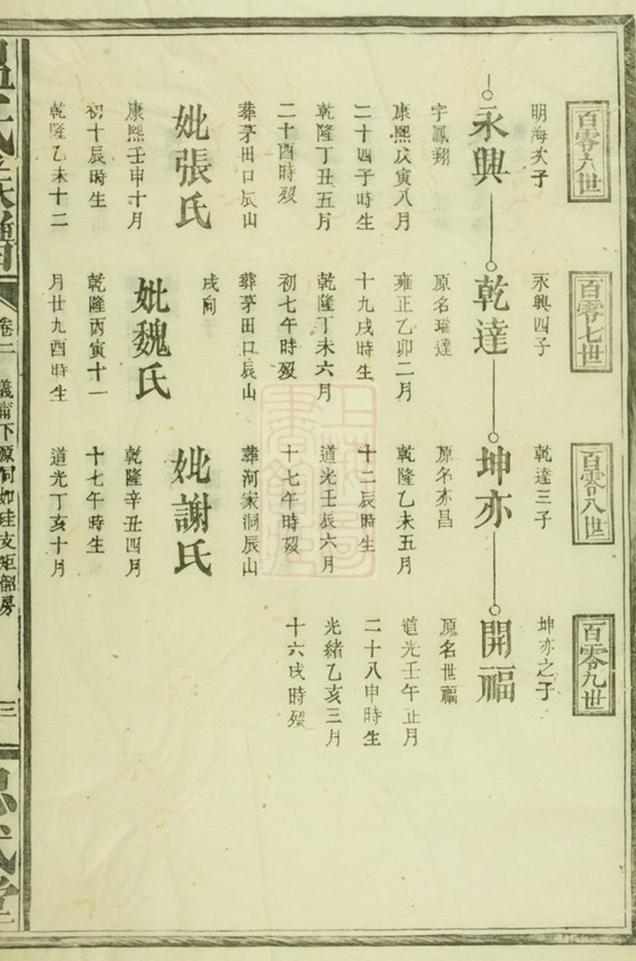 百零六世
明海次子
永興
字鳳翔
康熙戊寅八月
二十四子時生
乾隆丁丑五月
二十酉時歿
葬茅田口辰山
妣張氏
康熙壬申十月
初十辰時生
乾隆乙未十二
百零七世
永興四子
乾達
原名瓘達
雍正乙卯二月
十九戌時生
乾隆丁未六月
初七午時歿
葬茅田口辰山
戌向
妣魏氏
乾隆丙寅十一
月廿九酉時生
百零八世
乾達三子
坤亦
原名亦昌
乾隆乙未五月
十二辰時生
道光壬辰六月
十七午時歿
葬河家洞辰山
妣謝氏
乾隆辛丑四月
十七午時生
道光丁亥十月
百零九世
坤亦之子
開福
原名世福
道光壬午正月
二十八申時生
光緒乙亥三月
十六戌時歿
卷二
三